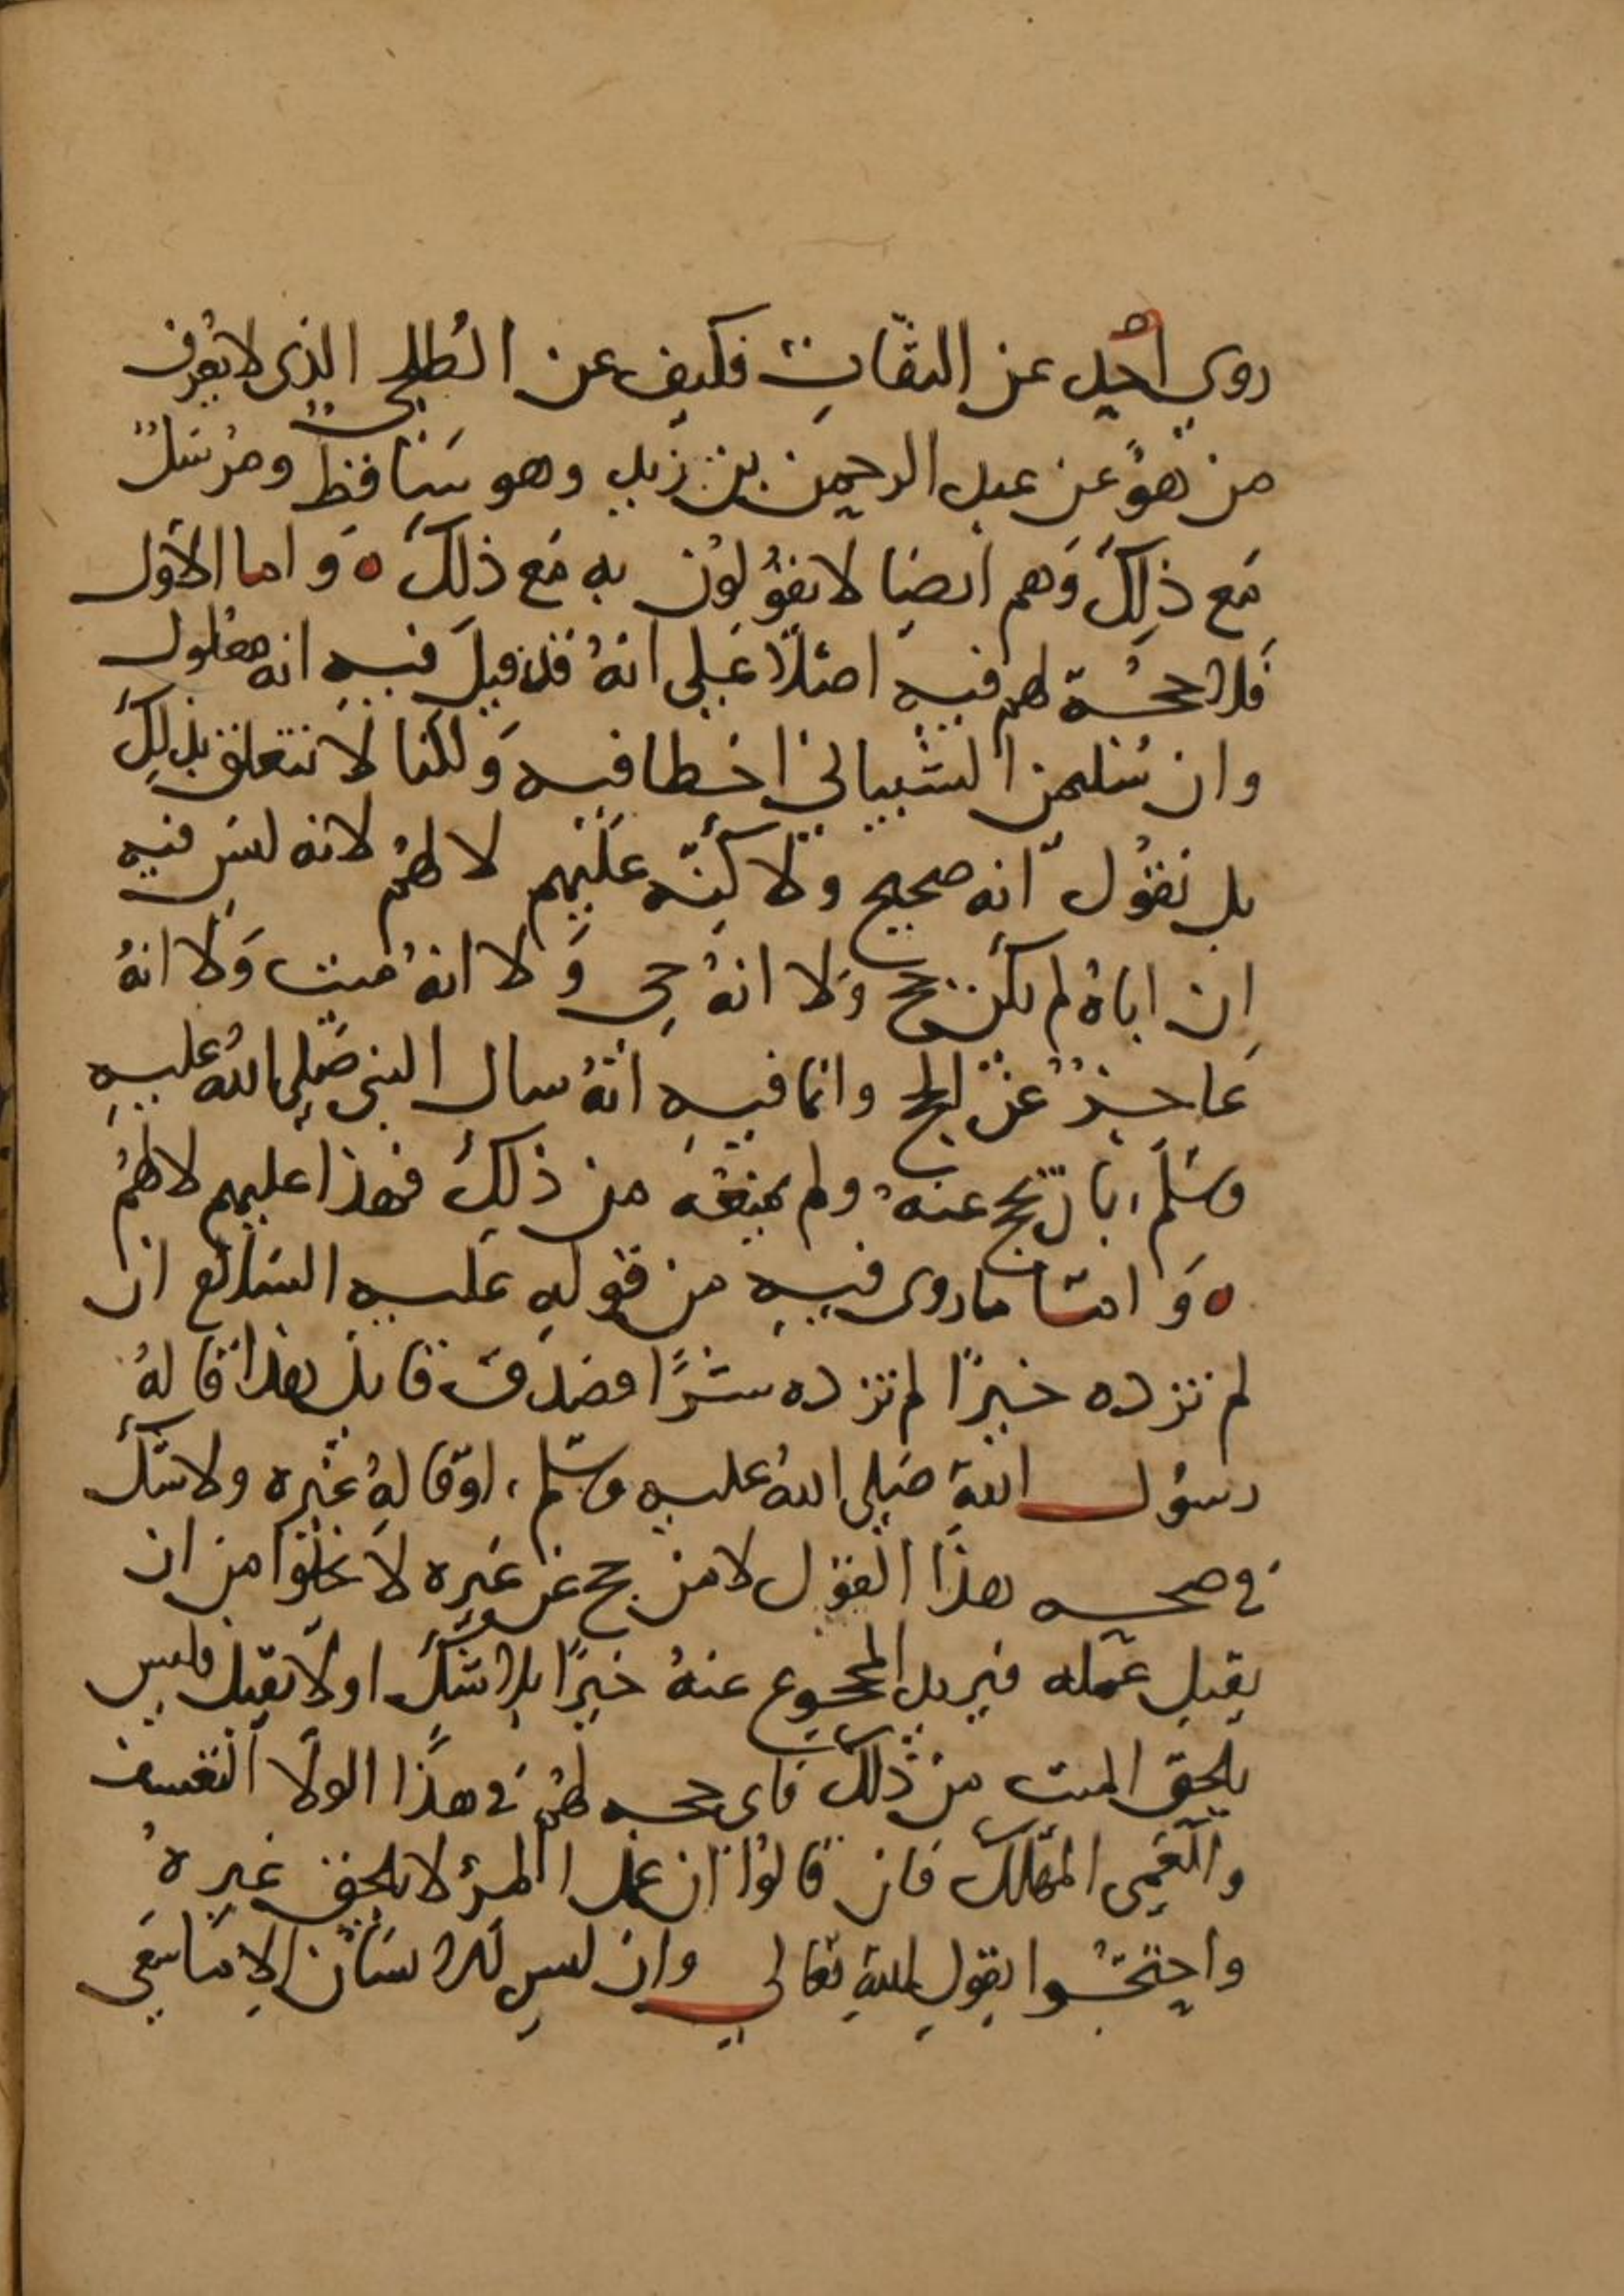 روى احد عن الثقات فكيف عن الطلحي الذى لا يعرف
من هو عن عبد الرحمن بن زيد وهو ساقط ومرسل
مع ذلك وهم ايضا لا يقولون به مع ذلك ه واما الاول
فلا حجة لهم فيه اصلا على انه قد قيل فيه انه معلول
وان سليمن الشيباني اخطا فيه ولكنا لا نتعلق بذلك
بل نقول انه صحيح ولاكنه عليهم لا لهم لانه ليس فيه
ان اباه لم يكن حج ولا انه حي ولا انه ميت ولا انه
عاجز عن الحج وانما فيه انه سال النبي صلى الله عليه
وسلم بان يحج عنه ولم يمنعه من ذلك فهذا عليهم لا لهم
ه واما ما روى فيه من قوله عليه السلام ان
لم تزده خيرا لم تزده شرا فصدق قايل هذا قاله
رسول الله صلى الله عليه وسلم او قاله غيره ولا شك
في صحه هذا القول لا من حج عن غيره لا يخلوا من ان
يقبل عمله فيزيد المحجوج عنه خيرا بلا شك او لا يقبل فليس
يلحق الميت من ذلك فاى حجه لهم في هذا الولا التعسف
والعمى المهلك فان قالوا ان عمل المرؤ لا يلحق غيره
واحتجوا بقول الله تعالى وان ليس للانسان الا ما سعى